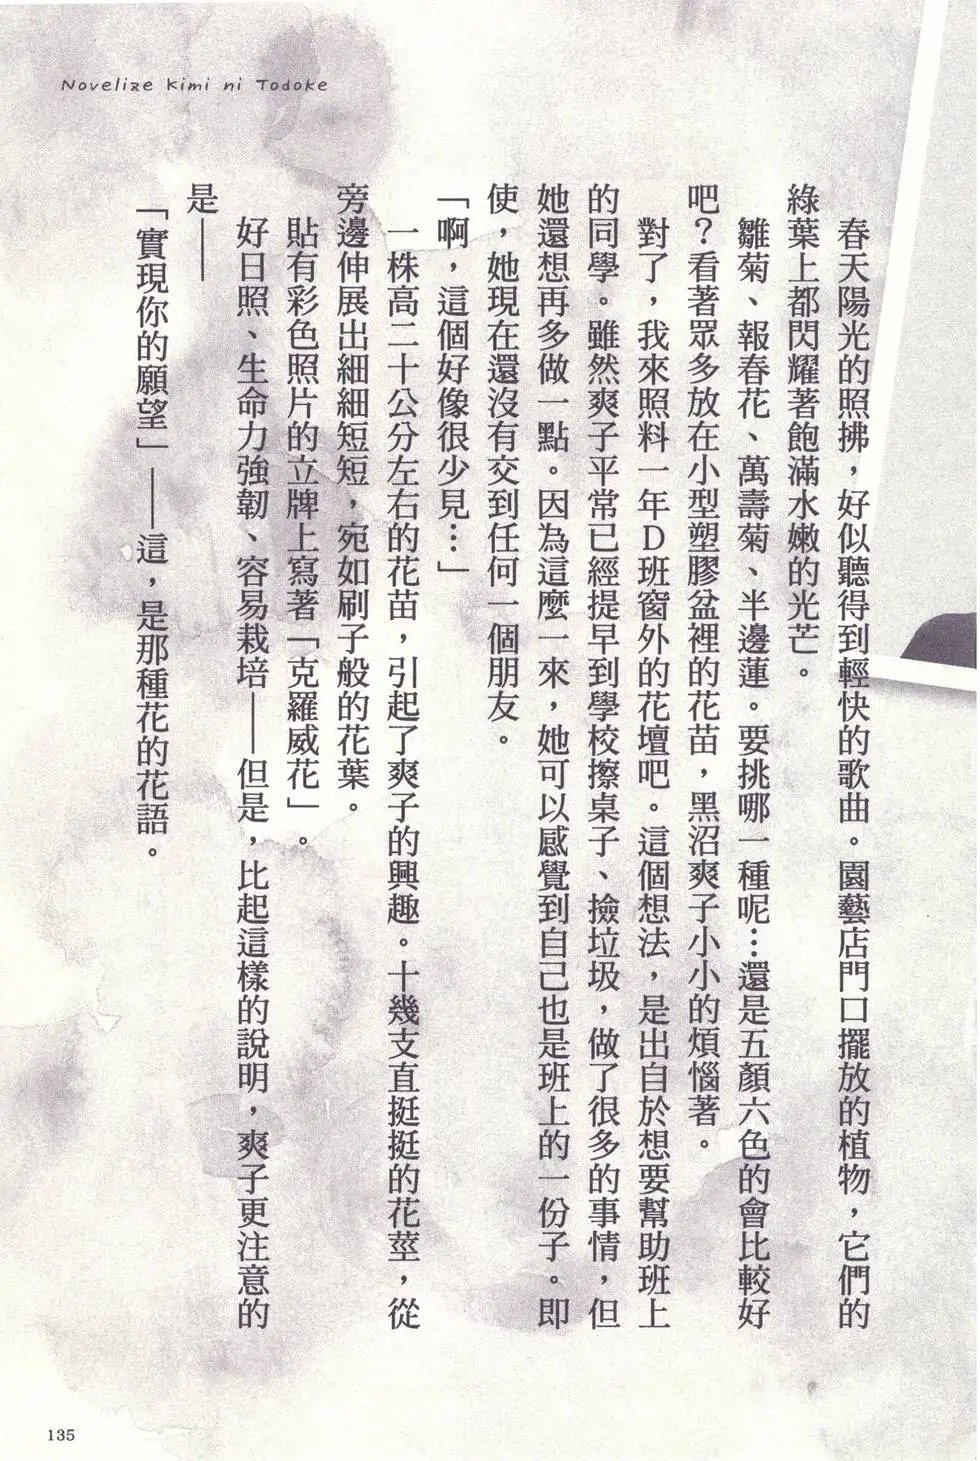 Novelize Kimi ni Todoke
春天陽光的照拂，好似聽得到輕快的歌曲。園藝店門口擺放的植物，它們的
綠葉上都閃耀著飽滿水嫩的光芒。
雛菊、報春花、萬壽菊、半邊蓮。要挑哪一種呢…還是五顏六色的會比較好
吧？看著眾多放在小型塑膠盆裡的花苗，黑沼爽子小小的煩惱著。
對了，我來照料一年Ｄ班窗外的花壇吧。這個想法，是出自於想要幫助班上
的同學。雖然爽子平常已經提早到學校擦桌子、撿垃圾，做了很多的事情，但
她還想再多做一點。因為這麼一來，她可以感覺到自己也是班上的一份子。即
使，她現在還沒有交到任何一個朋友。
「啊，這個好像很少見…」
一株高二十公分左右的花苗，引起了爽子的興趣。十幾支直挺挺的花莖，從
旁邊伸展出細細短短，宛如刷子般的花葉。
貼有彩色照片的立牌上寫著「克羅威花」。
好日照、生命力強韌、容易栽培——但是，比起這樣的說明，爽子更注意的
是——
「實現你的願望」——這，是那種花的花語。
135